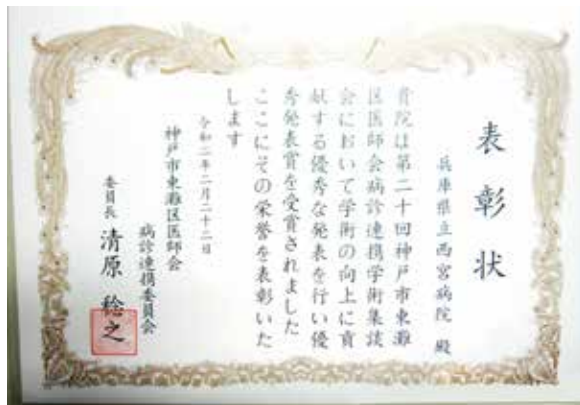 表彰状
兵庫県立西宮病院 殿
貴院は第二十回神戸市東灘
区医師会病診連携学術集談
会において学術の向上に貢
献する優秀な発表を行い優
秀発表賞を受賞されました
ここにその栄誉を表彰いた
します
令和二年二月二十二日
神戸市東灘区医師会
病診連携委員会
委員長 清原 稔之